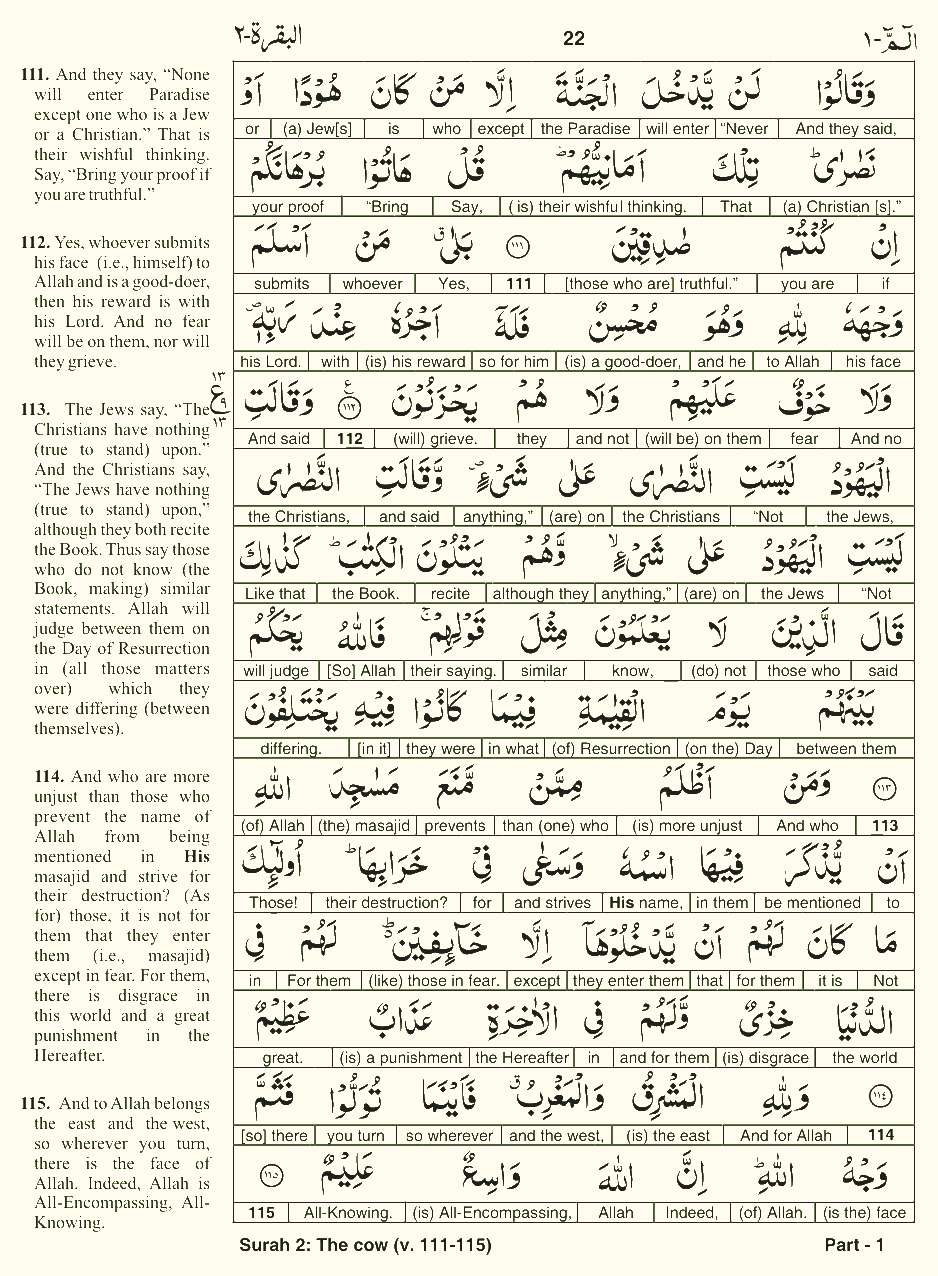 البقرة-٢ 22 الٓمّٓ-١
111. And they say, “None
will enter Paradise
except one who is a Jew
or a Christian.” That is
their wishful thinking.
Say, “Bring your proof if
you are truthful.”
112. Yes, whoever submits
his face (i.e., himself) to
Allah and is a good-doer,
then his reward is with
his Lord. And no fear
will be on them, nor will
they grieve.
113. The Jews say, “The
Christians have nothing
(true to stand) upon.”
And the Christians say,
“The Jews have nothing
(true to stand) upon,”
although they both recite
the Book. Thus say those
who do not know (the
Book, making) similar
statements. Allah will
judge between them on
the Day of Resurrection
in (all those matters
over) which they
were differing (between
themselves).
114. And who are more
unjust than those who
prevent the name of
Allah from being
mentioned in His
masajid and strive for
their destruction? (As
for) those, it is not for
them that they enter
them (i.e., masajid)
except in fear. For them,
there is disgrace in
this world and a great
punishment in the
Hereafter.
115. And to Allah belongs
the east and the west,
so wherever you turn,
there is the face of
Allah. Indeed, Allah is
All-Encompassing, All-
Knowing.
١٣
ع
٩
١٣
وَقَالُوْا لَنْ يَّدْخُلَ الْجَنَّةَ اِلَّا مَنْ كَانَ هُوْدًا اَوْ
or (a) Jew[s] is who except the Paradise will enter “Never And they said,
نَصٰرٰىؕ تِلْكَ اَمَانِيُّهُمْؕ قُلْ هَاتُوْا بُرْهَانَكُمْ
your proof “Bring Say, (is) their wishful thinking. That (a) Christian [s].”
اِنْ كُنْتُمْ صٰدِقِيْنَ ١١١ بَلٰىۗ مَنْ اَسْلَمَ
submits whoever Yes, 111 [those who are] truthful.” you are if
وَجْهَهٗ لِلّٰهِ وَهُوَ مُحْسِنٌ فَلَهٗۤ اَجْرُهٗ عِنْدَ رَبِّهٖ۪
his Lord. with (is) his reward so for him (is) a good-doer, and he to Allah his face
وَلَا خَوْفٌ عَلَيْهِمْ وَلَا هُمْ يَحْزَنُوْنَ ١١٢ ع وَقَالَتِ
And said 112 (will) grieve. they and not (will be) on them fear And no
الْيَهُوْدُ لَيْسَتِ النَّصٰرٰى عَلٰى شَيْءٍ۪ وَّقَالَتِ النَّصٰرٰى
the Christians, and said anything,” (are) on the Christians “Not the Jews,
لَيْسَتِ الْيَهُوْدُ عَلٰى شَيْءٍۙ وَّهُمْ يَتْلُوْنَ الْكِتٰبَؕ كَذٰلِكَ
Like that the Book. recite although they anything,” (are) on the Jews “Not
قَالَ الَّذِيْنَ لَا يَعْلَمُوْنَ مِثْلَ قَوْلِهِمْۚ فَاللّٰهُ يَحْكُمُ
will judge [So] Allah their saying. similar know, (do) not those who said
بَيْنَهُمْ يَوْمَ الْقِيٰمَةِ فِيْمَا كَانُوْا فِيْهِ يَخْتَلِفُوْنَ
differing. [in it] they were in what (of) Resurrection (on the) Day between them
١١٣ وَمَنْ اَظْلَمُ مِمَّنْ مَّنَعَ مَسٰجِدَ اللّٰهِ
(of) Allah (the) masajid prevents than (one) who (is) more unjust And who 113
اَنْ يُّذْكَرَ فِيْهَا اسْمُهٗ وَسَعٰى فِيْ خَرَابِهَاؕ اُولٰٓئِكَ
Those! their destruction? for and strives His name, in them be mentioned to
مَا كَانَ لَهُمْ اَنْ يَّدْخُلُوْهَاۤ اِلَّا خَآئِفِيْنَؕ لَهُمْ فِي
in For them (like) those in fear. except they enter them that for them it is Not
الدُّنْيَا خِزْيٌ وَّلَهُمْ فِي الْاٰخِرَةِ عَذَابٌ عَظِيْمٌ
great. (is) a punishment the Hereafter in and for them (is) disgrace the world
١١٤ وَلِلّٰهِ الْمَشْرِقُ وَالْمَغْرِبُۗ فَاَيْنَمَا تُوَلُّوْا فَثَمَّ
[so] there you turn so wherever and the west, (is) the east And for Allah 114
وَجْهُ اللّٰهِؕ اِنَّ اللّٰهَ وَاسِعٌ عَلِيْمٌ ١١٥
115 All-Knowing. (is) All-Encompassing, Allah Indeed, (of) Allah. (is the) face
Surah 2: The cow (v. 111-115) Part - 1